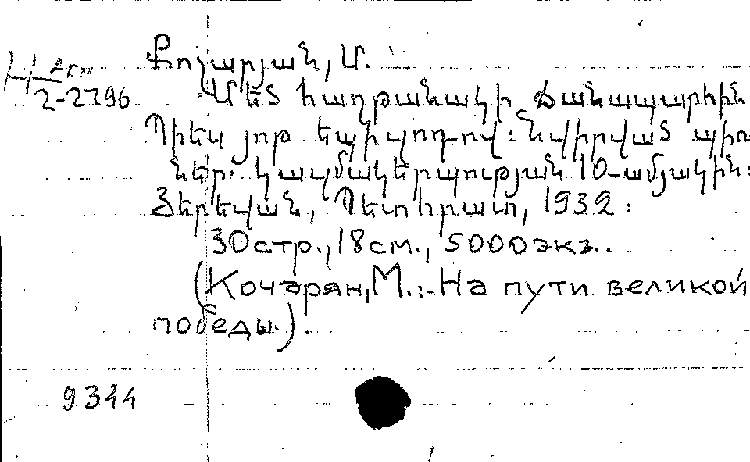 Քոչարյան, Մ.
2-2796 Մեծ հաղթանակի ճանապարհին
Պիես յոթ եպիզոդով: Նվիրված պիո-
ներ. կազմակերպության 10-ամյակին:
Յերեվան, Պետհրատ, 1932:
30стр., 18см., 5000экз.
(Кочарян, М.: На пути великой
победы.).
9344